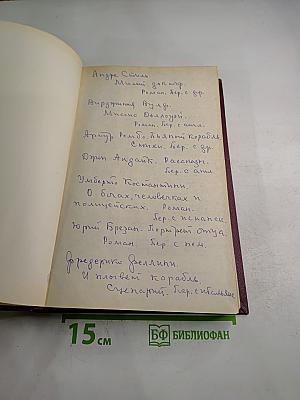 Андре Стиль.
Роман. Пер. с фр.
Вирджиния Вулф.
Миссис Дэллоуэй.
Роман. Пер. с англ.
Артур Рембо. Пьяный корабль
Стихи. Пер. с фр.
Джон Апдайк. Рассказы.
Пер. с англ.
Умберто Костантини.
О богах, человечках и
полицейских. Роман.
Пер. с испанск.
Юрий Брезан. Портрет отца.
Роман. Пер. с нем.
Федерико Феллини.
И плывет корабль.
Сценарий. Пер. с итальянс
15 см
БФ БИБЛИОФАН